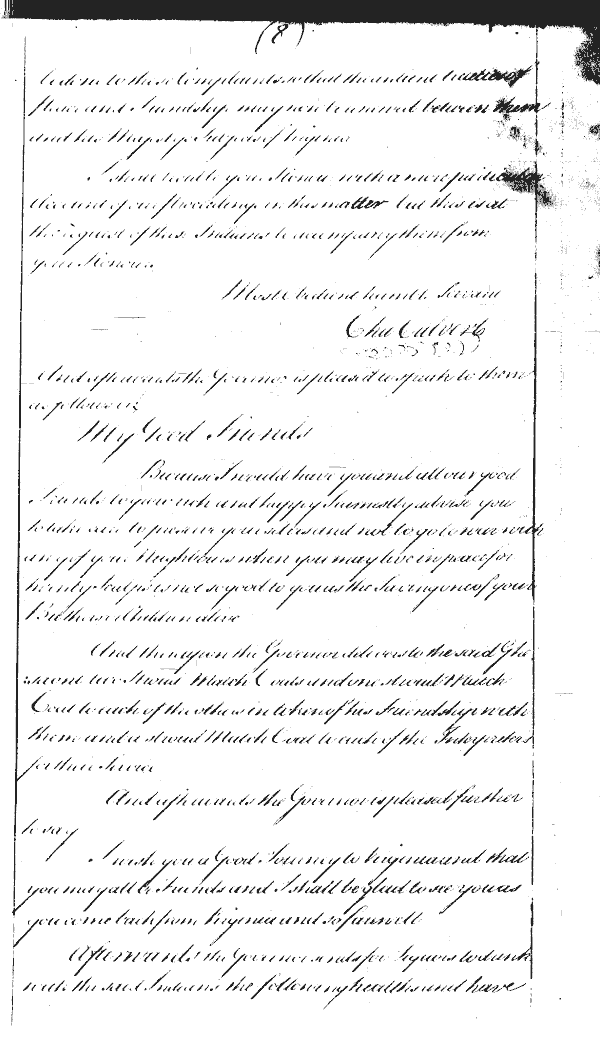 (8)
be done to these Complaints so that the antient treaties of
Peace and Friendship may now be renewed between them
and his Majestys Subjects of Virginia
I shall trouble your Honour with a more particular
Account of our proceedings in this matter but this is at
the request of these Indians to accompany them from
your Honours
Most obedient humble Servant
Cha Calvert
And afterwards the Governor is pleased to speak to them
as follows viz
My Good Friends
Because I would have you and all our good
Friends to grow rich and happy I earnestly advise you
to take care to preserve yourselves and not to go to war with
any of your Neighbours when you may live in peace for
twenty Scalps is not so good to you as the saving one of your
Brothers or Children alive
And thereupon the Governor delivers to the said
two Stroud Match Coats and one stroud Match
Coat to each of the others in token of his Friendship with
them and a stroud Match Coat to each of the Interpreters
for their Service
And afterwards the Governor is pleased further
to say
I wish you a Good Journey to Virginia and that
you may all be Friends and I shall be glad to see you as
you come back from Virginia and so farewell
Afterwards the Governor sends for Liquors to drink
with the said Indians the following healths and have